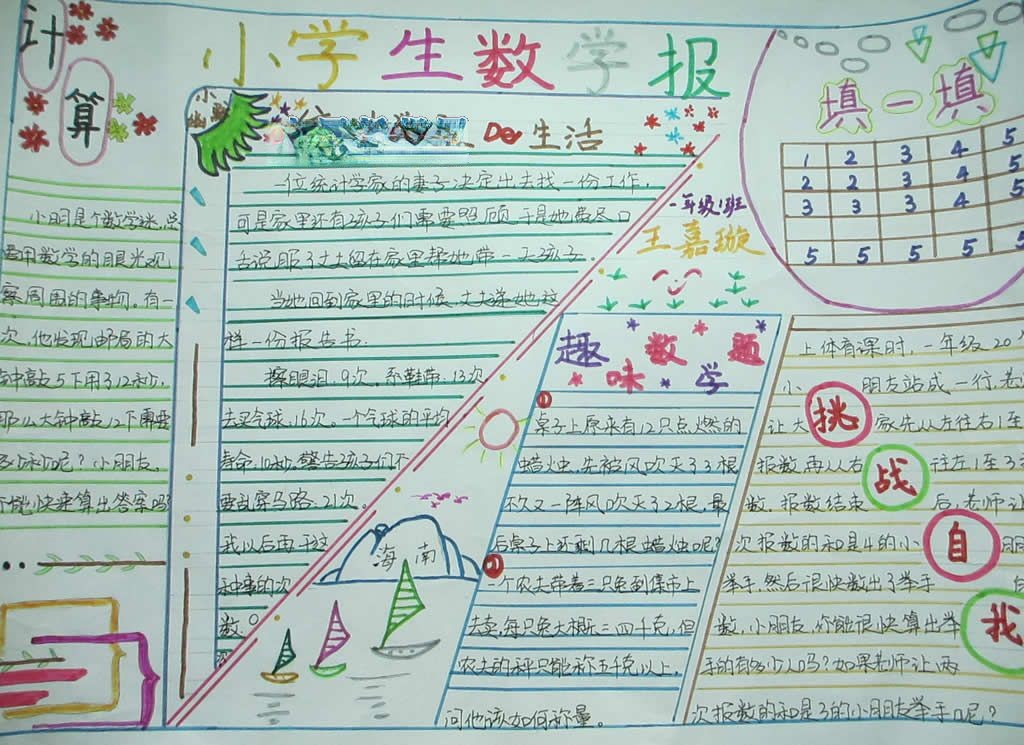 小学生数学报
计
算
小明是个数学迷,总
用数学的眼光观
察周围的事物。有一
次,他发现邮局的大
钟敲5下用了12秒,
那么大钟敲12下需要
多少秒呢?小朋友,
你能快速算出答案吗
小幽
De生活
一位统计学家的妻子决定出去找一份工作,
可是家里还有2孩子们需要照顾,于是她费尽口
舌说服了丈夫留在家里帮她带一天孩子。
当她回到家里的时候,丈夫递她这
样一份报告书.
擦眼泪:9次。系鞋带:13次
去买气球:16次。一个气球的平均
寿命:10秒。警告2孩子们不
要乱穿马路:21次。
我以后再干这
种事的次
数:0
一年级1班
王嘉璇
海南
趣味数学题
①
桌子上原来有12只点燃的
蜡烛,先被风吹灭了3根
不久又一阵风吹灭了2根,最
后桌子上还剩几根蜡烛呢?
一个农夫带着三只兔到集市上
去卖,每只兔大概三四千克,但
农夫的秤只能称五千克以上,
问他该如何称量。
填一填
1 2 3 4 5
2 2 3 4 5
3 3 3 4 5
5 5 5 5 5
挑战自我
上体育课时,一年级20
小朋友站成一行,老
让大家先从左往右1至
报数,再从右往左1至3
数,报数结束后,老师让
次报数的和是4的小朋
举手,然后很快数出了举手
数,小朋友,你能很快算出举
手的有多少人吗?如果老师让两
次报数的和是3的小朋友举手呢?